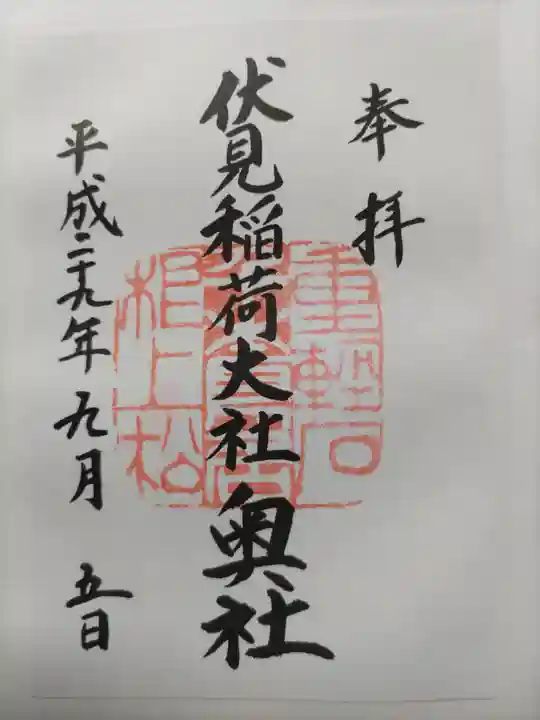 奉拝
伏見稲荷大社奥社
平成二十九年九月五日
重軽石
根上松